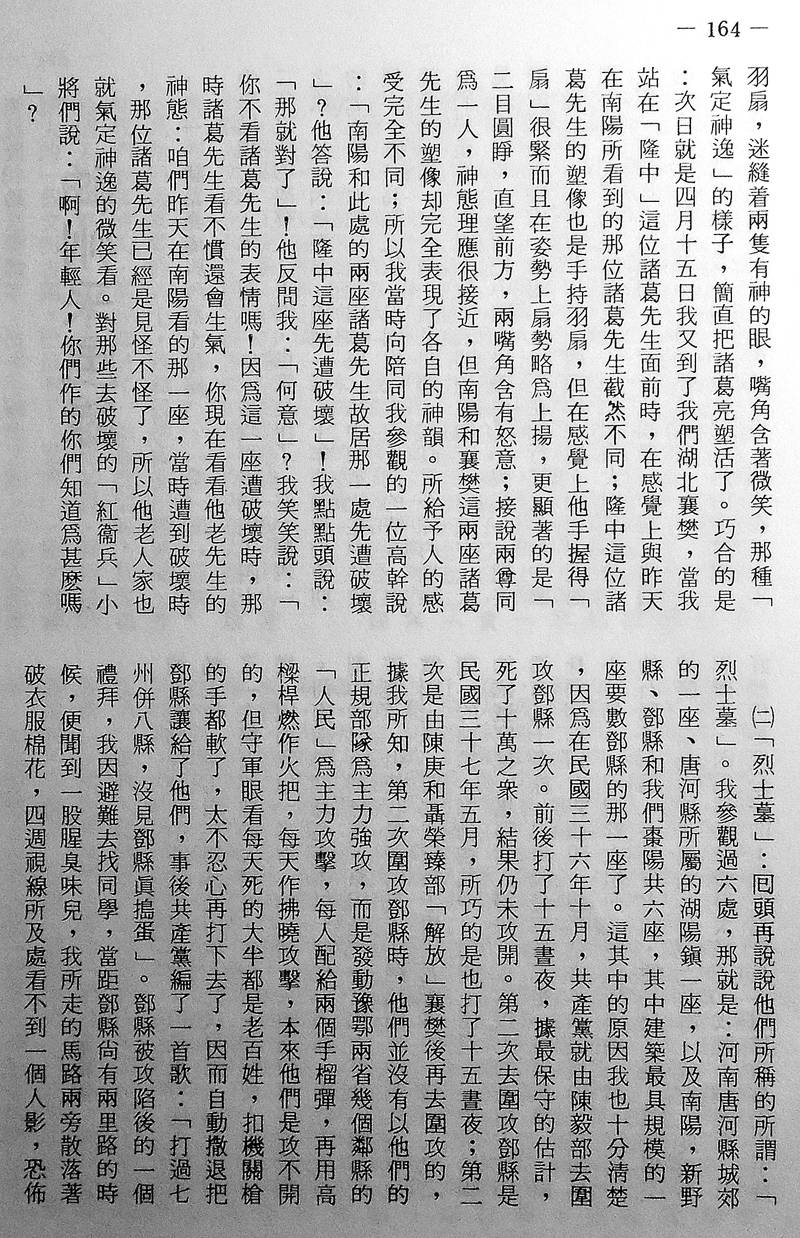 — 164 —
羽扇，迷縫着兩隻有神的眼，嘴角含著微笑，那種「
氣定神逸」的樣子，簡直把諸葛亮塑活了。巧合的是
：次日就是四月十五日我又到了我們湖北襄樊，當我
站在「隆中」這位諸葛先生面前時，在感覺上與昨天
在南陽所看到的那位諸葛先生截然不同；隆中這位諸
葛先生的塑像也是手持羽扇，但在感覺上他手握得「
扇」很緊而且在姿勢上扇勢略爲上揚，更顯著的是「
二目圓睜，直望前方，兩嘴角含有怒意；接說兩尊同
爲一人，神態理應很接近，但南陽和襄樊這兩座諸葛
先生的塑像却完全表現了各自的神韻。所給予人的感
受完全不同；所以我當時向陪同我參觀的一位高幹說
：「南陽和此處的兩座諸葛先生故居那一處先遭破壞
」？他答說：「隆中這座先遭破壞」！我點點頭說：
「那就對了」！他反問我：「何意」？我笑笑說：「
你不看諸葛先生的表情嗎！因爲這一座遭破壞時，那
時諸葛先生看不慣還會生氣，你現在看看他老先生的
神態：咱們昨天在南陽看的那一座，當時遭到破壞時
，那位諸葛先生已經是見怪不怪了，所以他老人家也
就氣定神逸的微笑看。對那些去破壞的「紅衞兵」小
將們說：「啊！年輕人！你們作的你們知道爲甚麽嗎
」？
㈡「烈士墓」：囘頭再說說他們所稱的所謂：「
烈士墓」。我參觀過六處，那就是：河南唐河縣城郊
的一座、唐河縣所屬的湖陽鎮一座，以及南陽，新野
縣、鄧縣和我們棗陽共六座，其中建築最具規模的一
座要數鄧縣的那一座了。這其中的原因我也十分清楚
，因爲在民國三十六年十月，共產黨就由陳毅部去圍
攻鄧縣一次。前後打了十五晝夜，據最保守的估計，
死了十萬之衆，結果仍未攻開。第二次去圍攻鄧縣是
民國三十七年五月，所巧的是也打了十五晝夜；第二
次是由陳庚和聶榮臻部「解放」襄樊後再去圍攻的，
據我所知，第二次圍攻鄧縣時，他們並沒有以他們的
正規部隊爲主力強攻，而是發動豫鄂兩省幾個鄰縣的
「人民」爲主力攻擊，每人配給兩個手榴彈，再用高
樑桿燃作火把，每天作拂曉攻擊，本來他們是攻不開
的，但守軍眼看每天死的大半都是老百姓，扣機關槍
的手都軟了，太不忍心再打下去了，因而自動撤退把
鄧縣讓給了他們，事後共產黨編了一首歌：「打過七
州併八縣，沒見鄧縣眞搗蛋」。鄧縣被攻陷後的一個
禮拜，我因避難去找同學，當距鄧縣尚有兩里路的時
候，便聞到一股腥臭味兒，我所走的馬路兩旁散落著
破衣服棉花，四週視線所及處看不到一個人影，恐佈